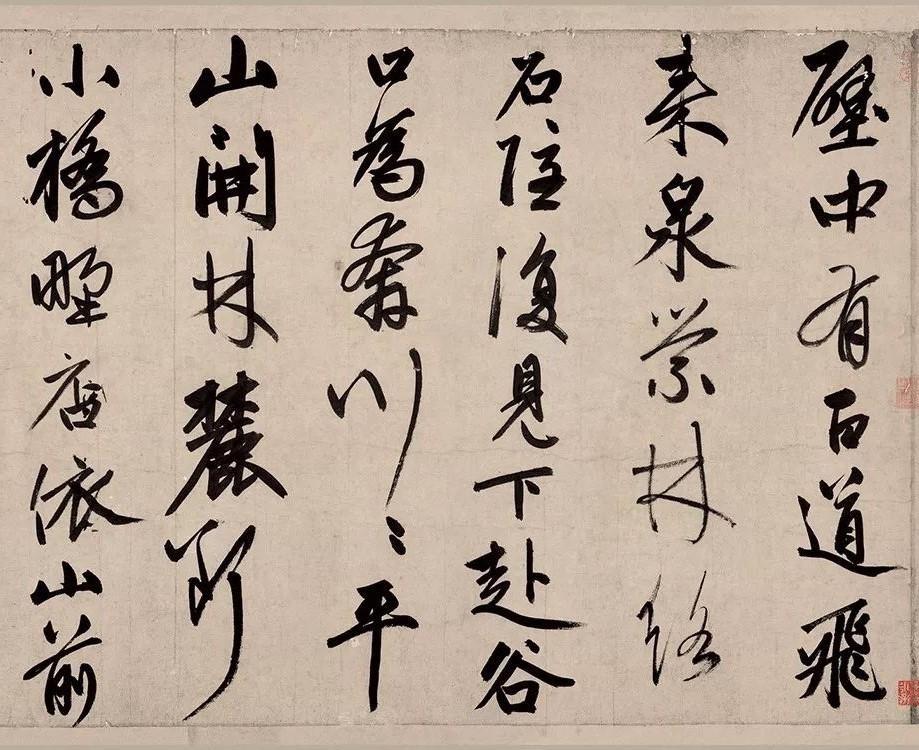 壁中有百道飛
來泉縈林絡
石隱復見下赴谷
口為奔川〻平
山開林麓斷
小橋野店依山前